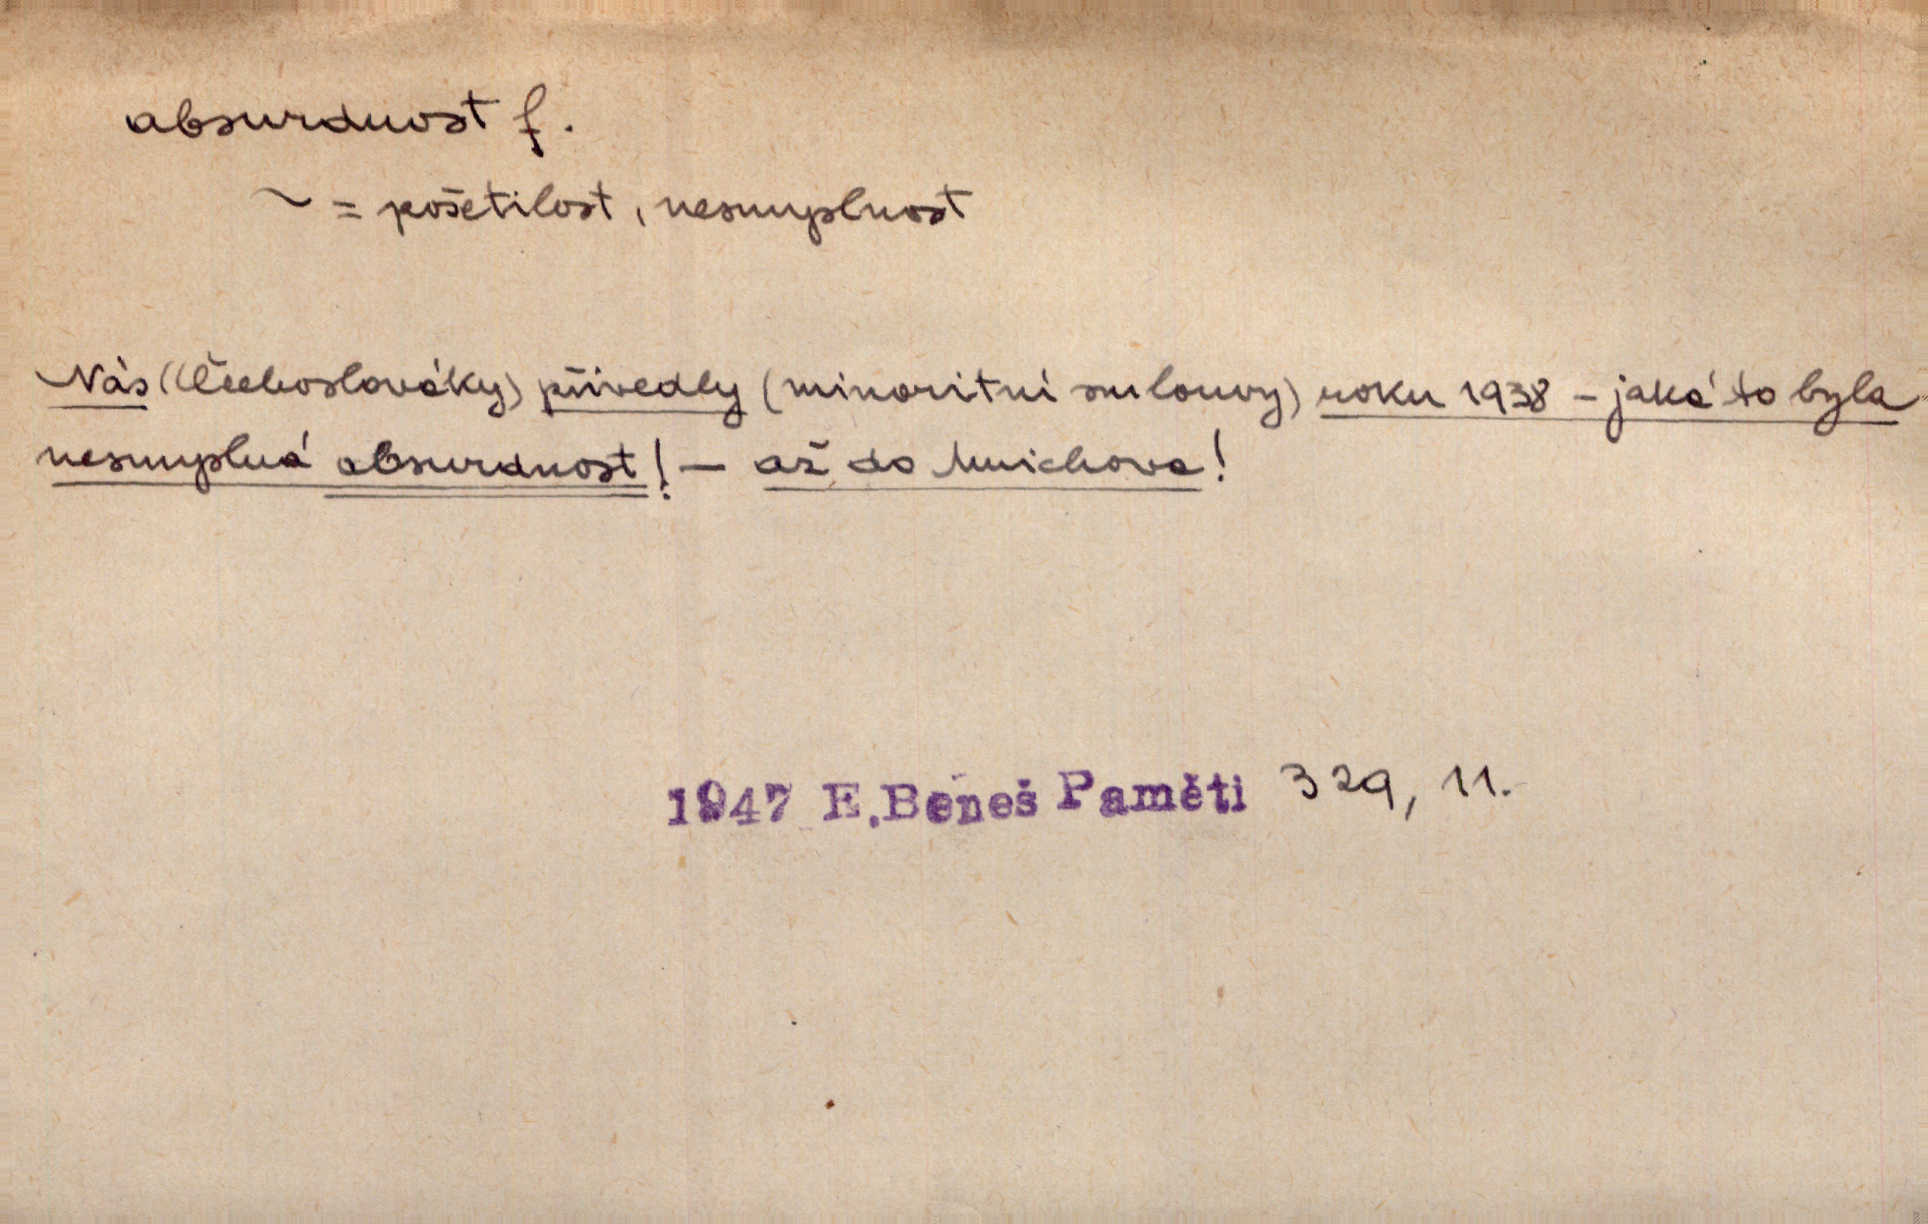 absurdnost f.
~ = pošetilost, nesmyslnost
Nás (Čechoslováky) přivedly (minoritní smlouvy) roku 1938 – jaká to byla
nesmyslná absurdnost! – až do Mnichova!
1947 E.Beneš Paměti 329, 11.